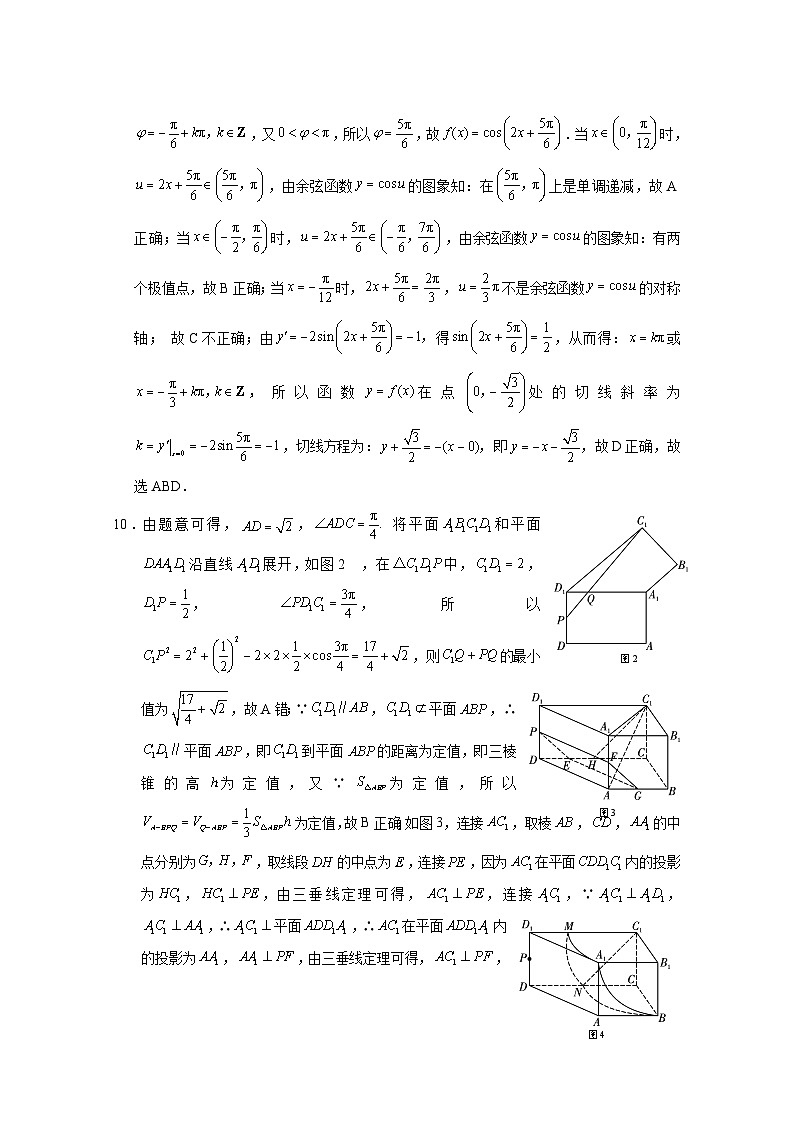 φ=−π/6+kπ，k∈Z，又0<φ<π，所以φ=5π/6，故f(x)=cos(2x+5π/6)．当x∈(0，π/12)时，
u=2x+5π/6∈(5π/6，π)，由余弦函数y=cosu的图象知：在(5π/6，π)上是单调递减，故A
正确；当x∈(−π/2，π/6)时，u=2x+5π/6∈(−π/6，7π/6)，由余弦函数y=cosu的图象知：有两
个极值点，故B正确；当x=−π/12时，2x+5π/6=2π/3，u=2/3π不是余弦函数y=cosu的对称
轴； 故C不正确；由y′=−2sin(2x+5π/6)=−1，得sin(2x+5π/6)=1/2，从而得：x=kπ或
x=−π/3+kπ,k∈Z，所以函数y=f(x)在点(0，−√3/2)处的切线斜率为
k=y′|ₓ₌₀=−2sin5π/6=−1，切线方程为：y+√3/2=−(x−0)，即y=−x−√3/2，故D正确，故
选ABD．
10．由题意可得，AD=√2，∠ADC=π/4. 将平面A₁B₁C₁D₁和平面
DAA₁D₁沿直线A₁D₁展开，如图2 ，在△C₁D₁P中，C₁D₁=2，
D₁P=1/2，∠PD₁C₁=3π/4，所以
C₁P²=2²+(1/2)²−2×2×1/2×cos3π/4=17/4+√2，则C₁Q+PQ的最小
值为√(17/4+√2)，故A错；∵C₁D₁∥AB，C₁D₁⊄平面ABP，∴
C₁D₁∥平面ABP，即C₁D₁到平面ABP的距离为定值，即三棱
锥的高h为定值，又∵S△AEP为定值，所以
V_{A−EPQ}=V_{Q−AEP}=1/3S△AEPh为定值，故B正确；如图3，连接AC₁，取棱AB，CD，AA₁的中
点分别为G，H，F，取线段DH的中点为E，连接PE，因为AC₁在平面CDD₁C₁内的投影
为HC₁，HC₁⊥PE，由三垂线定理可得，AC₁⊥PE，连接A₁C₁，∵A₁C₁⊥A₁D₁，
A₁C₁⊥AA₁，∴A₁C₁⊥平面ADD₁A₁，∴AC₁在平面ADD₁A₁内
的投影为AA₁，AA₁⊥PF，由三垂线定理可得，AC₁⊥PF，
C₁
B₁
D₁
Q
A₁
P
D
A
图2
D₁
C₁
A₁
B₁
P
F
D
E
H
C
A
G
B
图3
D₁
M
C₁
A₁
B₁
P
D
N
C
A
B
图4